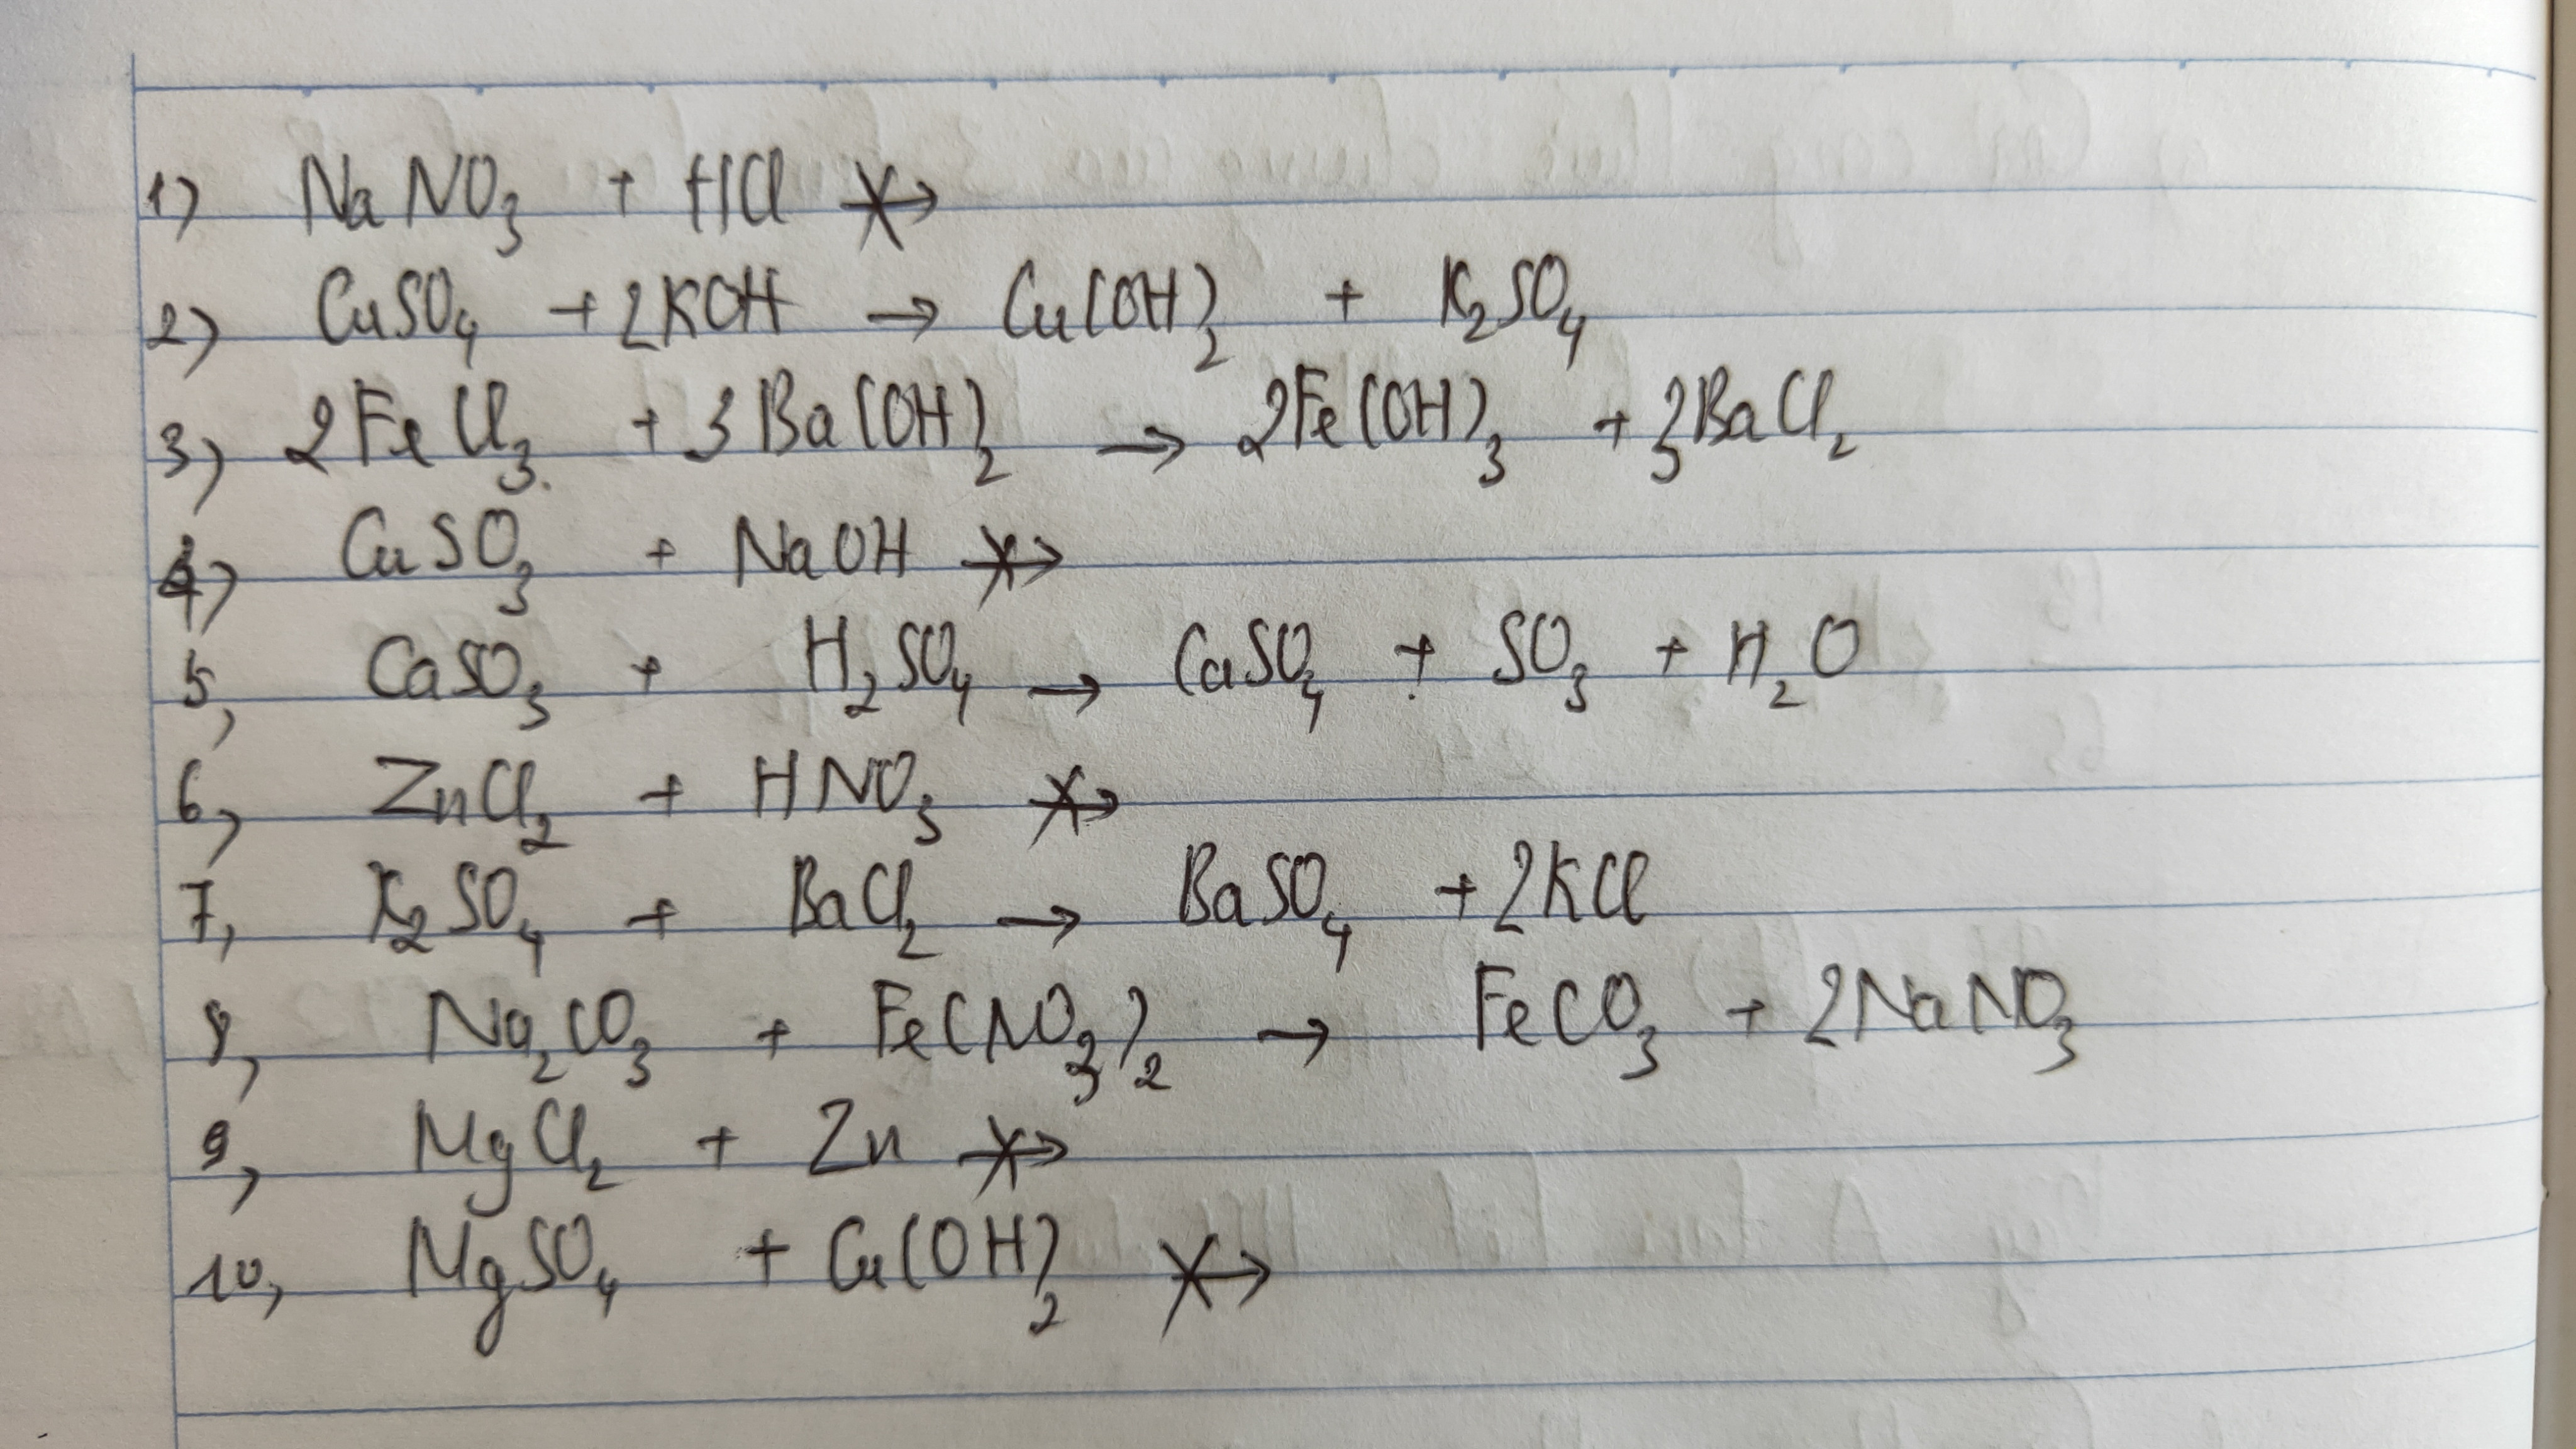 1) NaNO₃ + HCl ↛
2) CuSO₄ + 2KOH → Cu(OH)₂ + K₂SO₄
3) 2FeCl₃ + 3Ba(OH)₂ → 2Fe(OH)₃ + 3BaCl₂
4) CuSO₃ + NaOH ↛
5, CaSO₃ + H₂SO₄ → CaSO₄ + SO₃ + H₂O
6, ZnCl₂ + HNO₃ ↛
7, K₂SO₄ + BaCl₂ → BaSO₄ + 2KCl
8, Na₂CO₃ + Fe(NO₃)₂ → FeCO₃ + 2NaNO₃
9, MgCl₂ + Zn ↛
10, MgSO₄ + Cu(OH)₂ ↛